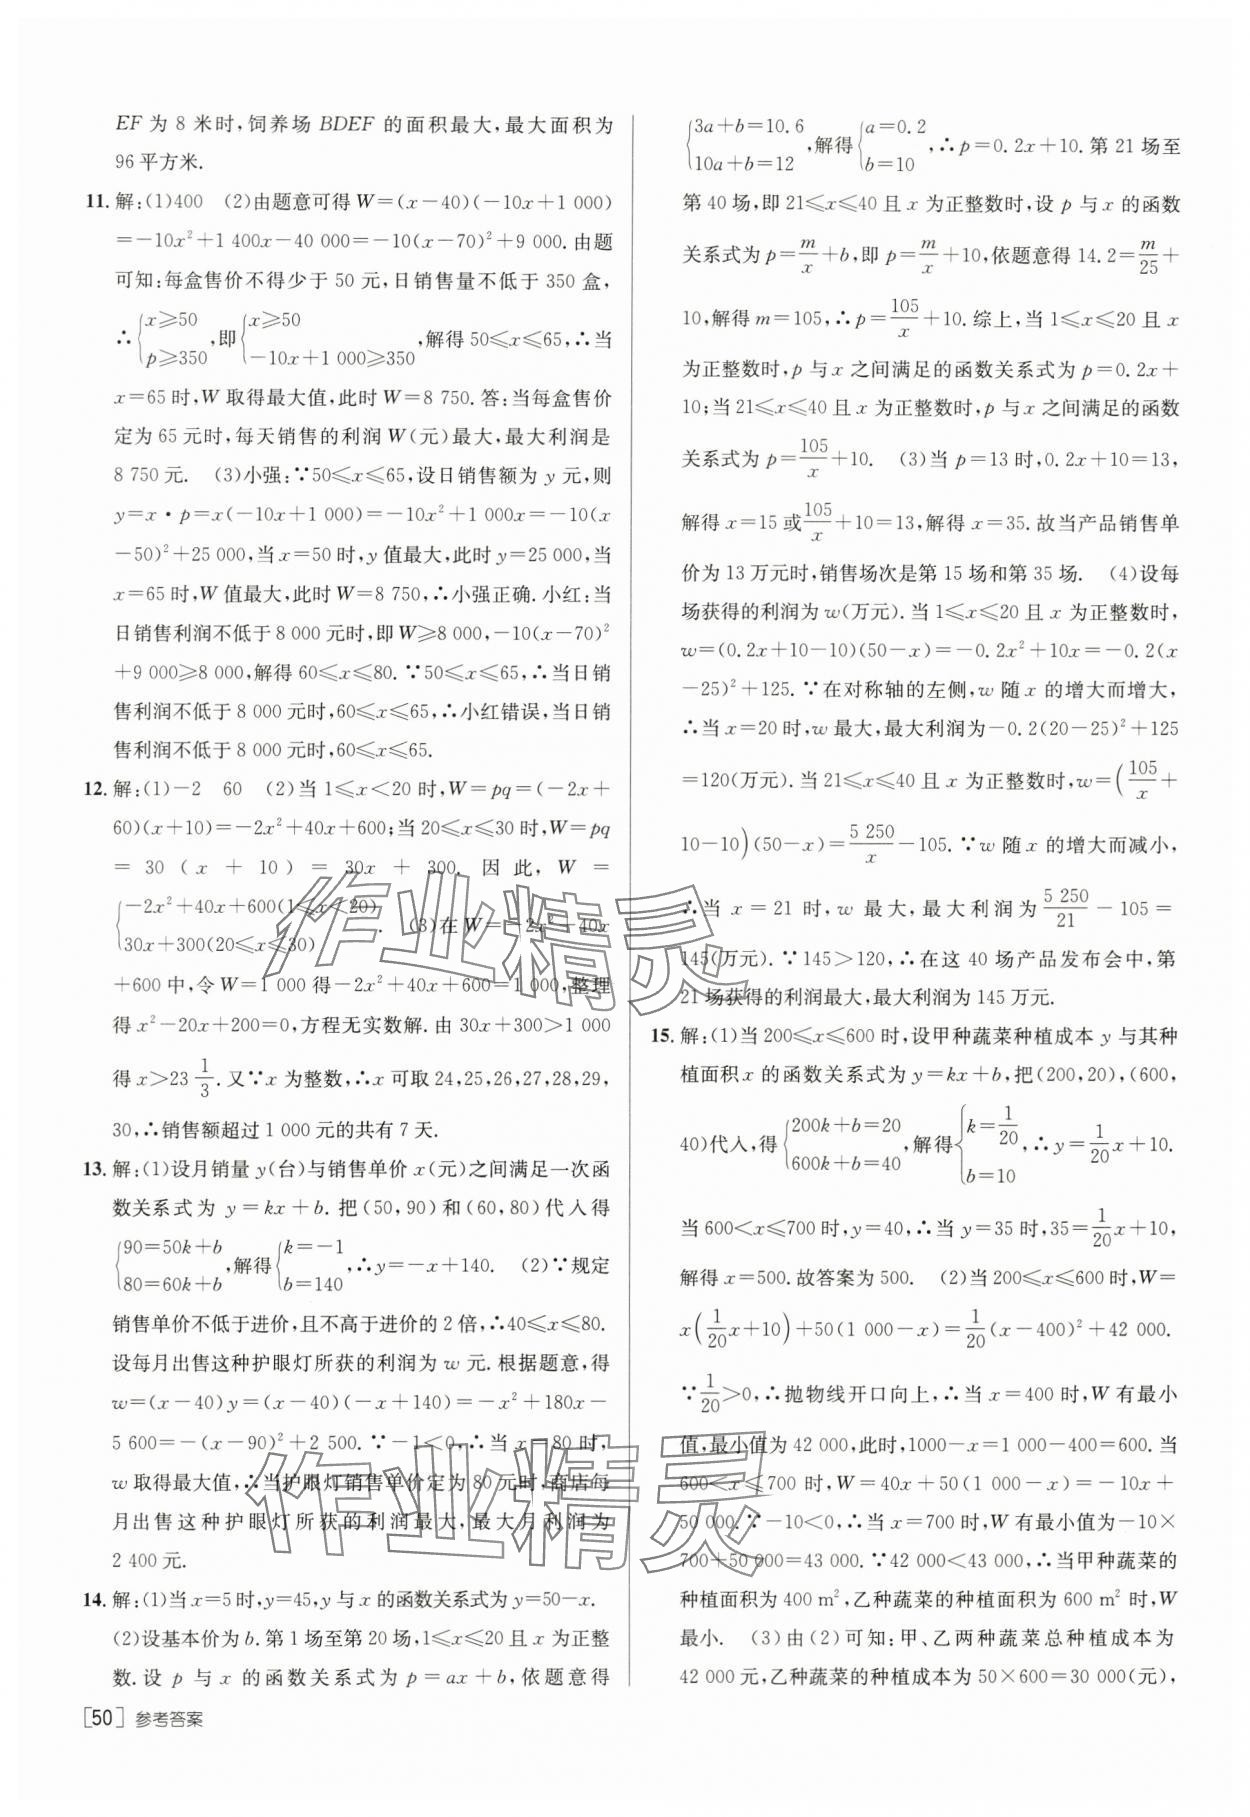 EF 为 8 米时,饲养场 BDEF 的面积最大,最大面积为
96 平方米.
11. 解:(1)400 (2)由题意可得 W=(x-40)(-10x+1 000)
=-10x²+1 400x-40 000=-10(x-70)²+9 000.由题
可知:每盒售价不得少于 50 元,日销售量不低于 350 盒,
∴{x≥50 p≥350,即{x≥50 -10x+1 000≥350,解得 50≤x≤65,∴当
x=65 时,W 取得最大值,此时 W=8 750.答:当每盒售价
定为 65 元时,每天销售的利润 W(元)最大,最大利润是
8 750 元. (3)小强:∵50≤x≤65,设日销售额为 y 元,则
y=x·p=x(-10x+1 000)=-10x²+1 000x=-10(x
-50)²+25 000,当 x=50 时,y 值最大,此时 y=25 000,当
x=65 时,W 值最大,此时 W=8 750,∴小强正确.小红:当
日销售利润不低于 8 000 元时,即 W≥8 000,-10(x-70)²
+9 000≥8 000,解得 60≤x≤80.∵50≤x≤65,∴当日销
售利润不低于 8 000 元时,60≤x≤65,∴小红错误,当日销
售利润不低于 8 000 元时,60≤x≤65.
12. 解:(1)-2 60 (2)当 1≤x<20 时,W=pq=(-2x+
60)(x+10)=-2x²+40x+600;当 20≤x≤30 时,W=pq
=30(x+10)=30x+300.因此,W=
{-2x²+40x+600(1≤x≤20) 30x+300(20≤x≤30). (3)在 W=-2x²+40x
+600 中,令 W=1 000 得-2x²+40x+600=1 000,整理
得 x²-20x+200=0,方程无实数解.由 30x+300>1 000
得 x>23 1/3.又∵x 为整数,∴x 可取 24,25,26,27,28,29,
30,∴销售额超过 1 000 元的共有 7 天.
13. 解:(1)设月销量 y(台)与销售单价 x(元)之间满足一次函
数关系式为 y=kx+b.把(50,90)和(60,80)代入得
{90=50k+b 80=60k+b,解得{k=-1 b=140,∴y=-x+140. (2)∵规定
销售单价不低于进价,且不高于进价的 2 倍,∴40≤x≤80.
设每月出售这种护眼灯所获的利润为 w 元.根据题意,得
w=(x-40)y=(x-40)(-x+140)=-x²+180x-
5 600=-(x-90)²+2 500.∵-1<0,∴当 x=80 时,
w 取得最大值,∴当护眼灯销售单价定为 80 元时,商店每
月出售这种护眼灯所获的利润最大,最大月利润为
2 400 元.
14. 解:(1)当 x=5 时,y=45,y 与 x 的函数关系式为 y=50-x.
(2)设基本价为 b.第 1 场至第 20 场,1≤x≤20 且 x 为正整
数.设 p 与 x 的函数关系式为 p=ax+b,依题意得
[50] 参考答案
{3a+b=10.6 10a+b=12,解得{a=0.2 b=10,∴p=0.2x+10.第 21 场至
第 40 场,即 21≤x≤40 且 x 为正整数时,设 p 与 x 的函数
关系式为 p=m/x+b,即 p=m/x+10,依题意得 14.2=m/25+
10,解得 m=105,∴p=105/x+10.综上,当 1≤x≤20 且 x
为正整数时,p 与 x 之间满足的函数关系式为 p=0.2x+
10;当 21≤x≤40 且 x 为正整数时,p 与 x 之间满足的函数
关系式为 p=105/x+10. (3)当 p=13 时,0.2x+10=13,
解得 x=15 或105/x+10=13,解得 x=35.故当产品销售单
价为 13 万元时,销售场次是第 15 场和第 35 场. (4)设每
场获得的利润为 w(万元).当 1≤x≤20 且 x 为正整数时,
w=(0.2x+10-10)(50-x)=-0.2x²+10x=-0.2(x
-25)²+125.∵在对称轴的左侧,w 随 x 的增大而增大,
∴当 x=20 时,w 最大,最大利润为-0.2(20-25)²+125
=120(万元).当 21≤x≤40 且 x 为正整数时,w=(105/x+
10-10)(50-x)=5 250/x-105.∵w 随 x 的增大而减小,
∴当 x=21 时,w 最大,最大利润为5 250/21-105=
145(万元).∵145>120,∴在这 40 场产品发布会中,第
21 场获得的利润最大,最大利润为 145 万元.
15. 解:(1)当 200≤x≤600 时,设甲种蔬菜种植成本 y 与其种
植面积 x 的函数关系式为 y=kx+b,把(200,20),(600,
40)代入,得{200k+b=20 600k+b=40,解得{k=1/20 b=10,∴y=1/20x+10.
当 600<x≤700 时,y=40,∴当 y=35 时,35=1/20x+10,
解得 x=500.故答案为 500. (2)当 200≤x≤600 时,W=
x(1/20x+10)+50(1 000-x)=1/20(x-400)²+42 000.
∵1/20>0,∴抛物线开口向上,∴当 x=400 时,W 有最小
值,最小值为 42 000,此时,1000-x=1 000-400=600.当
600<x≤700 时,W=40x+50(1 000-x)=-10x+
50 000.∵-10<0,∴当 x=700 时,W 有最小值为-10×
700+50 000=43 000.∵42 000<43 000,∴当甲种蔬菜的
种植面积为 400 m²,乙种蔬菜的种植面积为 600 m² 时,W
最小. (3)由(2)可知:甲、乙两种蔬菜总种植成本为
42 000 元,乙种蔬菜的种植成本为 50×600=30 000(元),
作业精灵
作业精灵